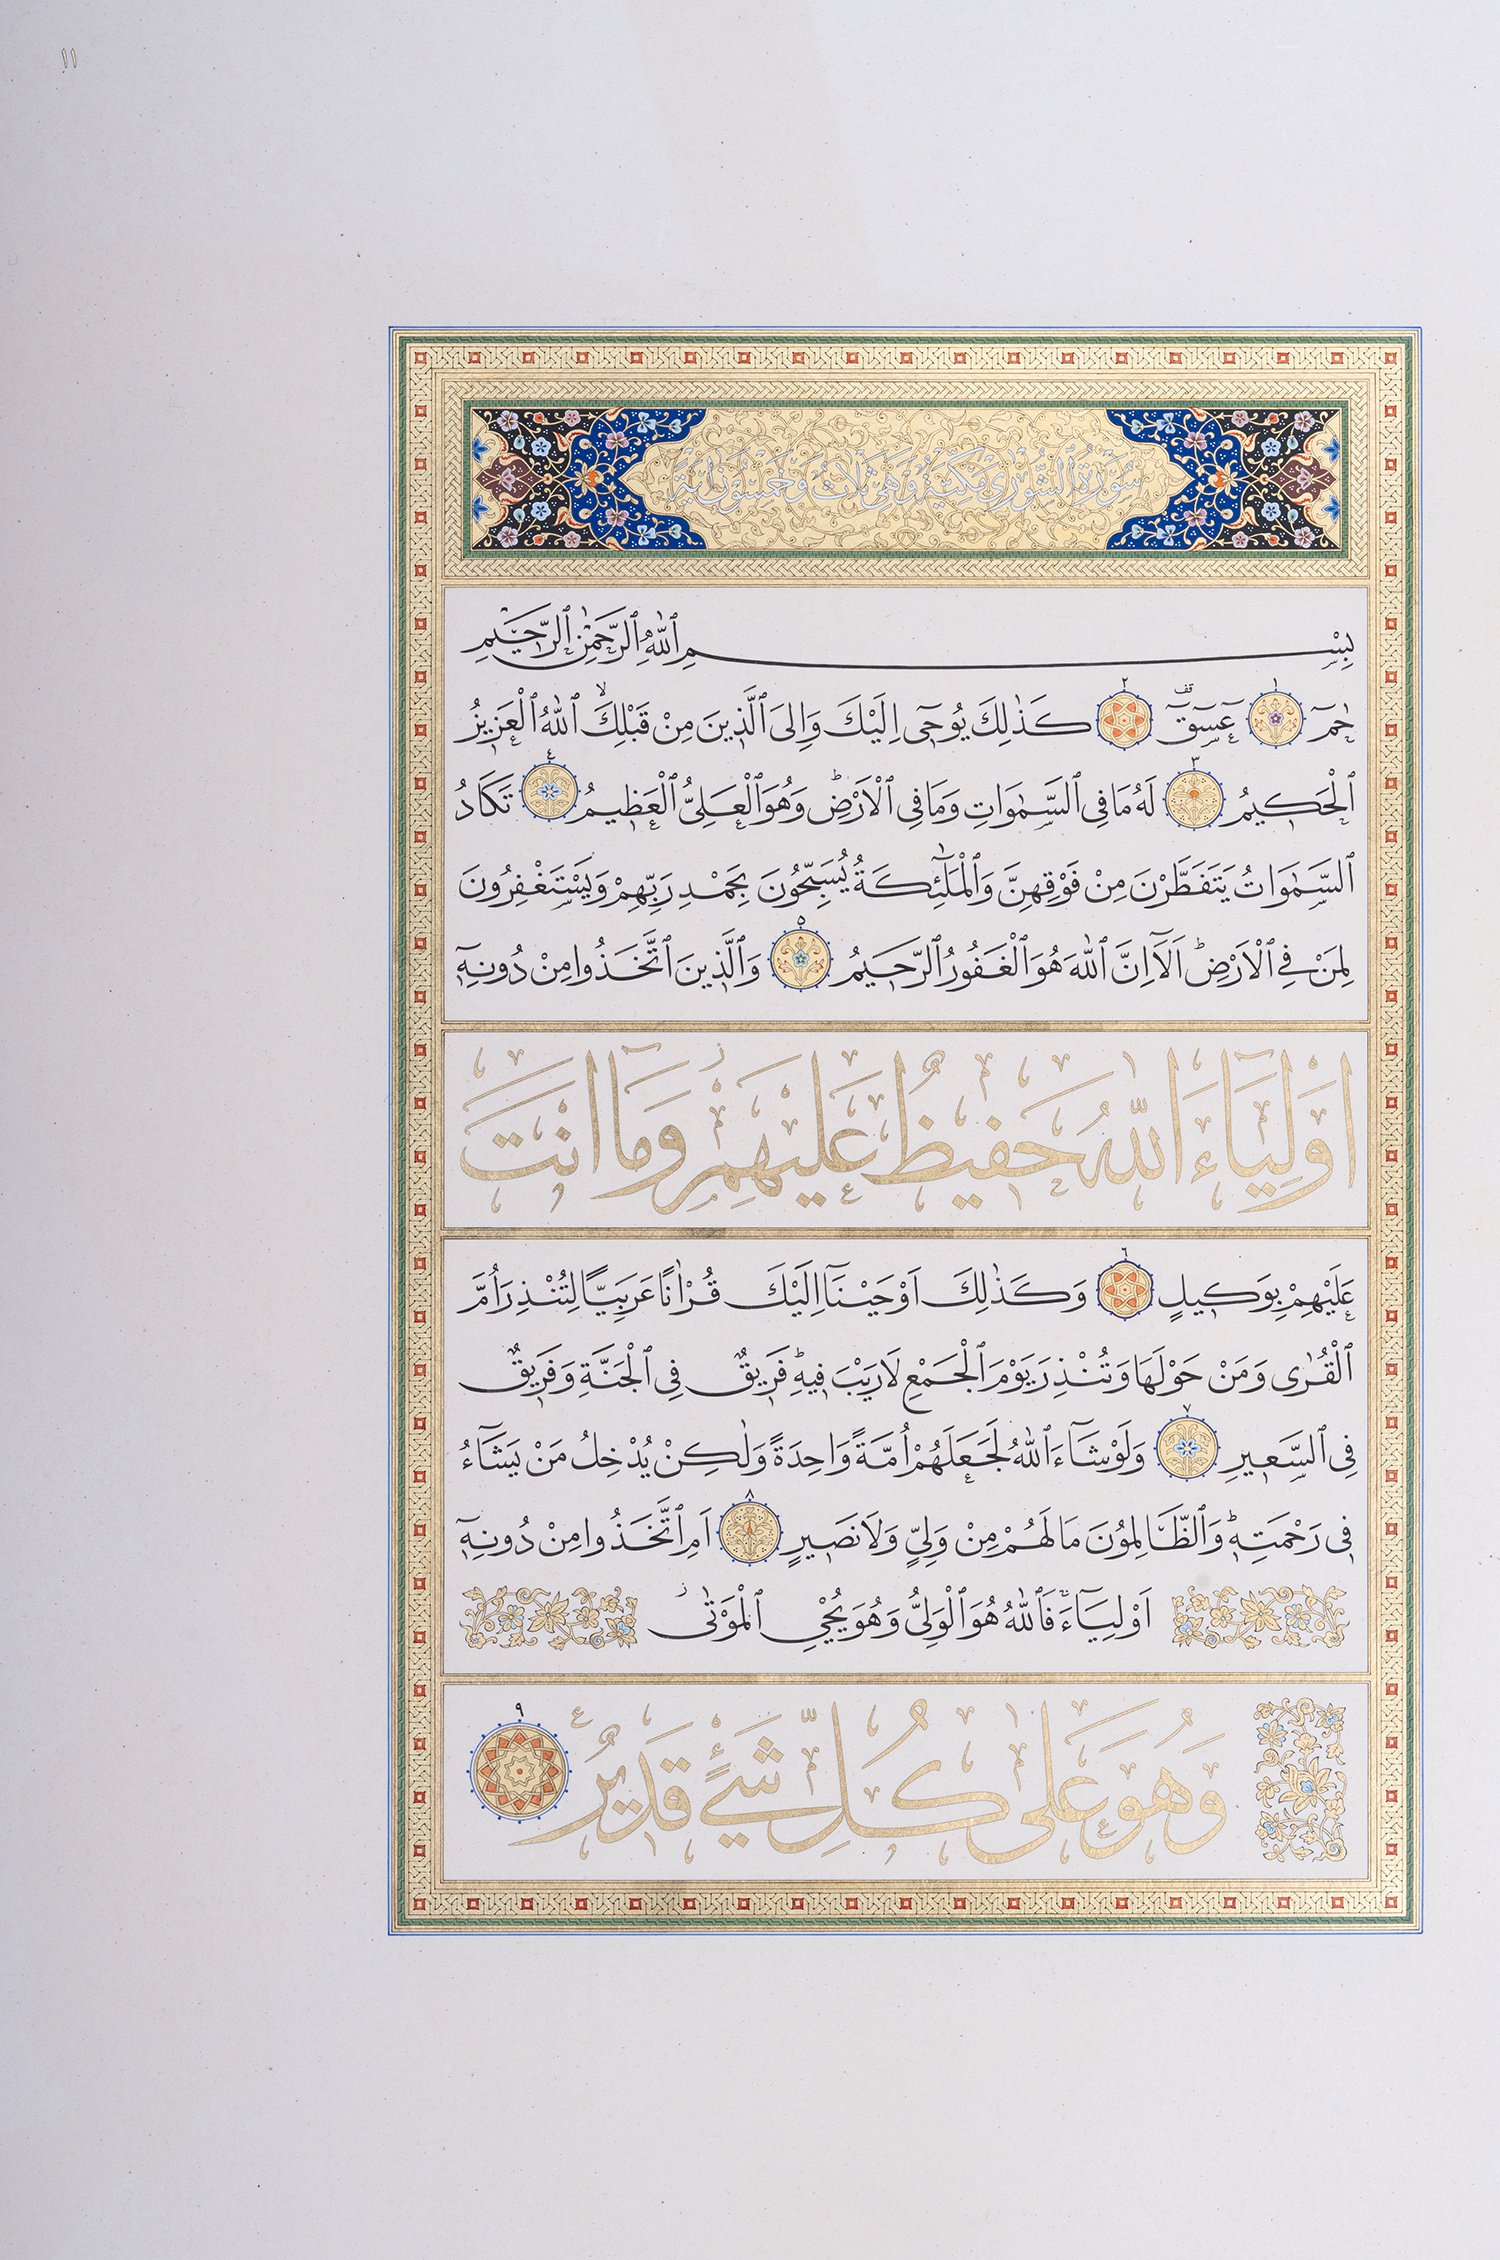 ١١
سُورَةُ الشُّورٰى مَكِّيَّةٌ وَهِيَ ثَلَاثٌ وَخَمْسُونَ اٰيَةً
بِسْمِ ٱللّٰهِ ٱلرَّحْمٰنِ ٱلرَّحِيمِ
حٰمٓ ١ عٓسٓقٓ ۠ ٢ كَذٰلِكَ يُوحٓى اِلَيْكَ وَاِلَى ٱلَّذِينَ مِنْ قَبْلِكَۙ ٱللّٰهُ ٱلْعَزِيزُ
ٱلْحَكِيمُ ٣ لَهُ مَا فِى ٱلسَّمٰوَاتِ وَمَا فِى ٱلْاَرْضِۜ وَهُوَ ٱلْعَلِىُّ ٱلْعَظِيمُ ٤ تَكَادُ
ٱلسَّمٰوَاتُ يَتَفَطَّرْنَ مِنْ فَوْقِهِنَّ وَٱلْمَلٰٓئِكَةُ يُسَبِّحُونَ بِحَمْدِ رَبِّهِمْ وَيَسْتَغْفِرُونَ
لِمَنْ فِى ٱلْاَرْضِۜ اَلَآ اِنَّ ٱللّٰهَ هُوَ ٱلْغَفُورُ ٱلرَّحِيمُ ٥ وَٱلَّذِينَ ٱتَّخَذُوا مِنْ دُونِهِٓ
اَوْلِيَٓاءَ ٱللّٰهُ حَفِيظٌ عَلَيْهِمْۘ وَمَٓا اَنْتَ
عَلَيْهِمْ بِوَكِيلٍ ٦ وَكَذٰلِكَ اَوْحَيْنَٓا اِلَيْكَ قُرْاٰنًا عَرَبِيًّا لِتُنْذِرَ اُمَّ
ٱلْقُرٰى وَمَنْ حَوْلَهَا وَتُنْذِرَ يَوْمَ ٱلْجَمْعِ لَا رَيْبَ فِيهِۜ فَرِيقٌ فِى ٱلْجَنَّةِ وَفَرِيقٌ
فِى ٱلسَّعِيرِ ٧ وَلَوْ شَٓاءَ ٱللّٰهُ لَجَعَلَهُمْ اُمَّةً وَاحِدَةً وَلٰكِنْ يُدْخِلُ مَنْ يَشَٓاءُ
فِى رَحْمَتِهِۜ وَٱلظَّالِمُونَ مَا لَهُمْ مِنْ وَلِىٍّ وَلَا نَصِيرٍ ٨ اَمِ ٱتَّخَذُوا مِنْ دُونِهِٓ
اَوْلِيَٓاءَۚ فَٱللّٰهُ هُوَ ٱلْوَلِىُّ وَهُوَ يُحْيِى ٱلْمَوْتٰىۘ
وَهُوَ عَلٰى كُلِّ شَىْءٍ قَدِيرٌ ٩